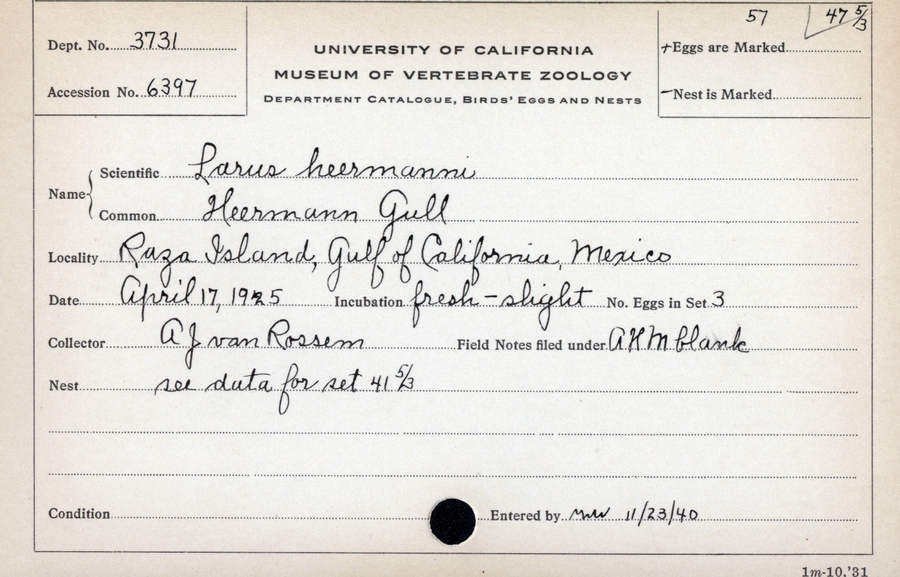 57 47 5/3
Dept. No. 3731
UNIVERSITY OF CALIFORNIA
+Eggs are Marked
MUSEUM OF VERTEBRATE ZOOLOGY
Accession No. 6397
DEPARTMENT CATALOGUE, BIRDS' EGGS AND NESTS
-Nest is Marked
Name { Scientific Larus heermanni
Common Heermann Gull
Locality Raza Island, Gulf of California, Mexico
Date April 17, 1925 Incubation fresh-slight No. Eggs in Set 3
Collector A J van Rossem Field Notes filed under AKM blank
Nest see data for set 41 5/3
Condition Entered by mw 11/23/40
1m-10,'31